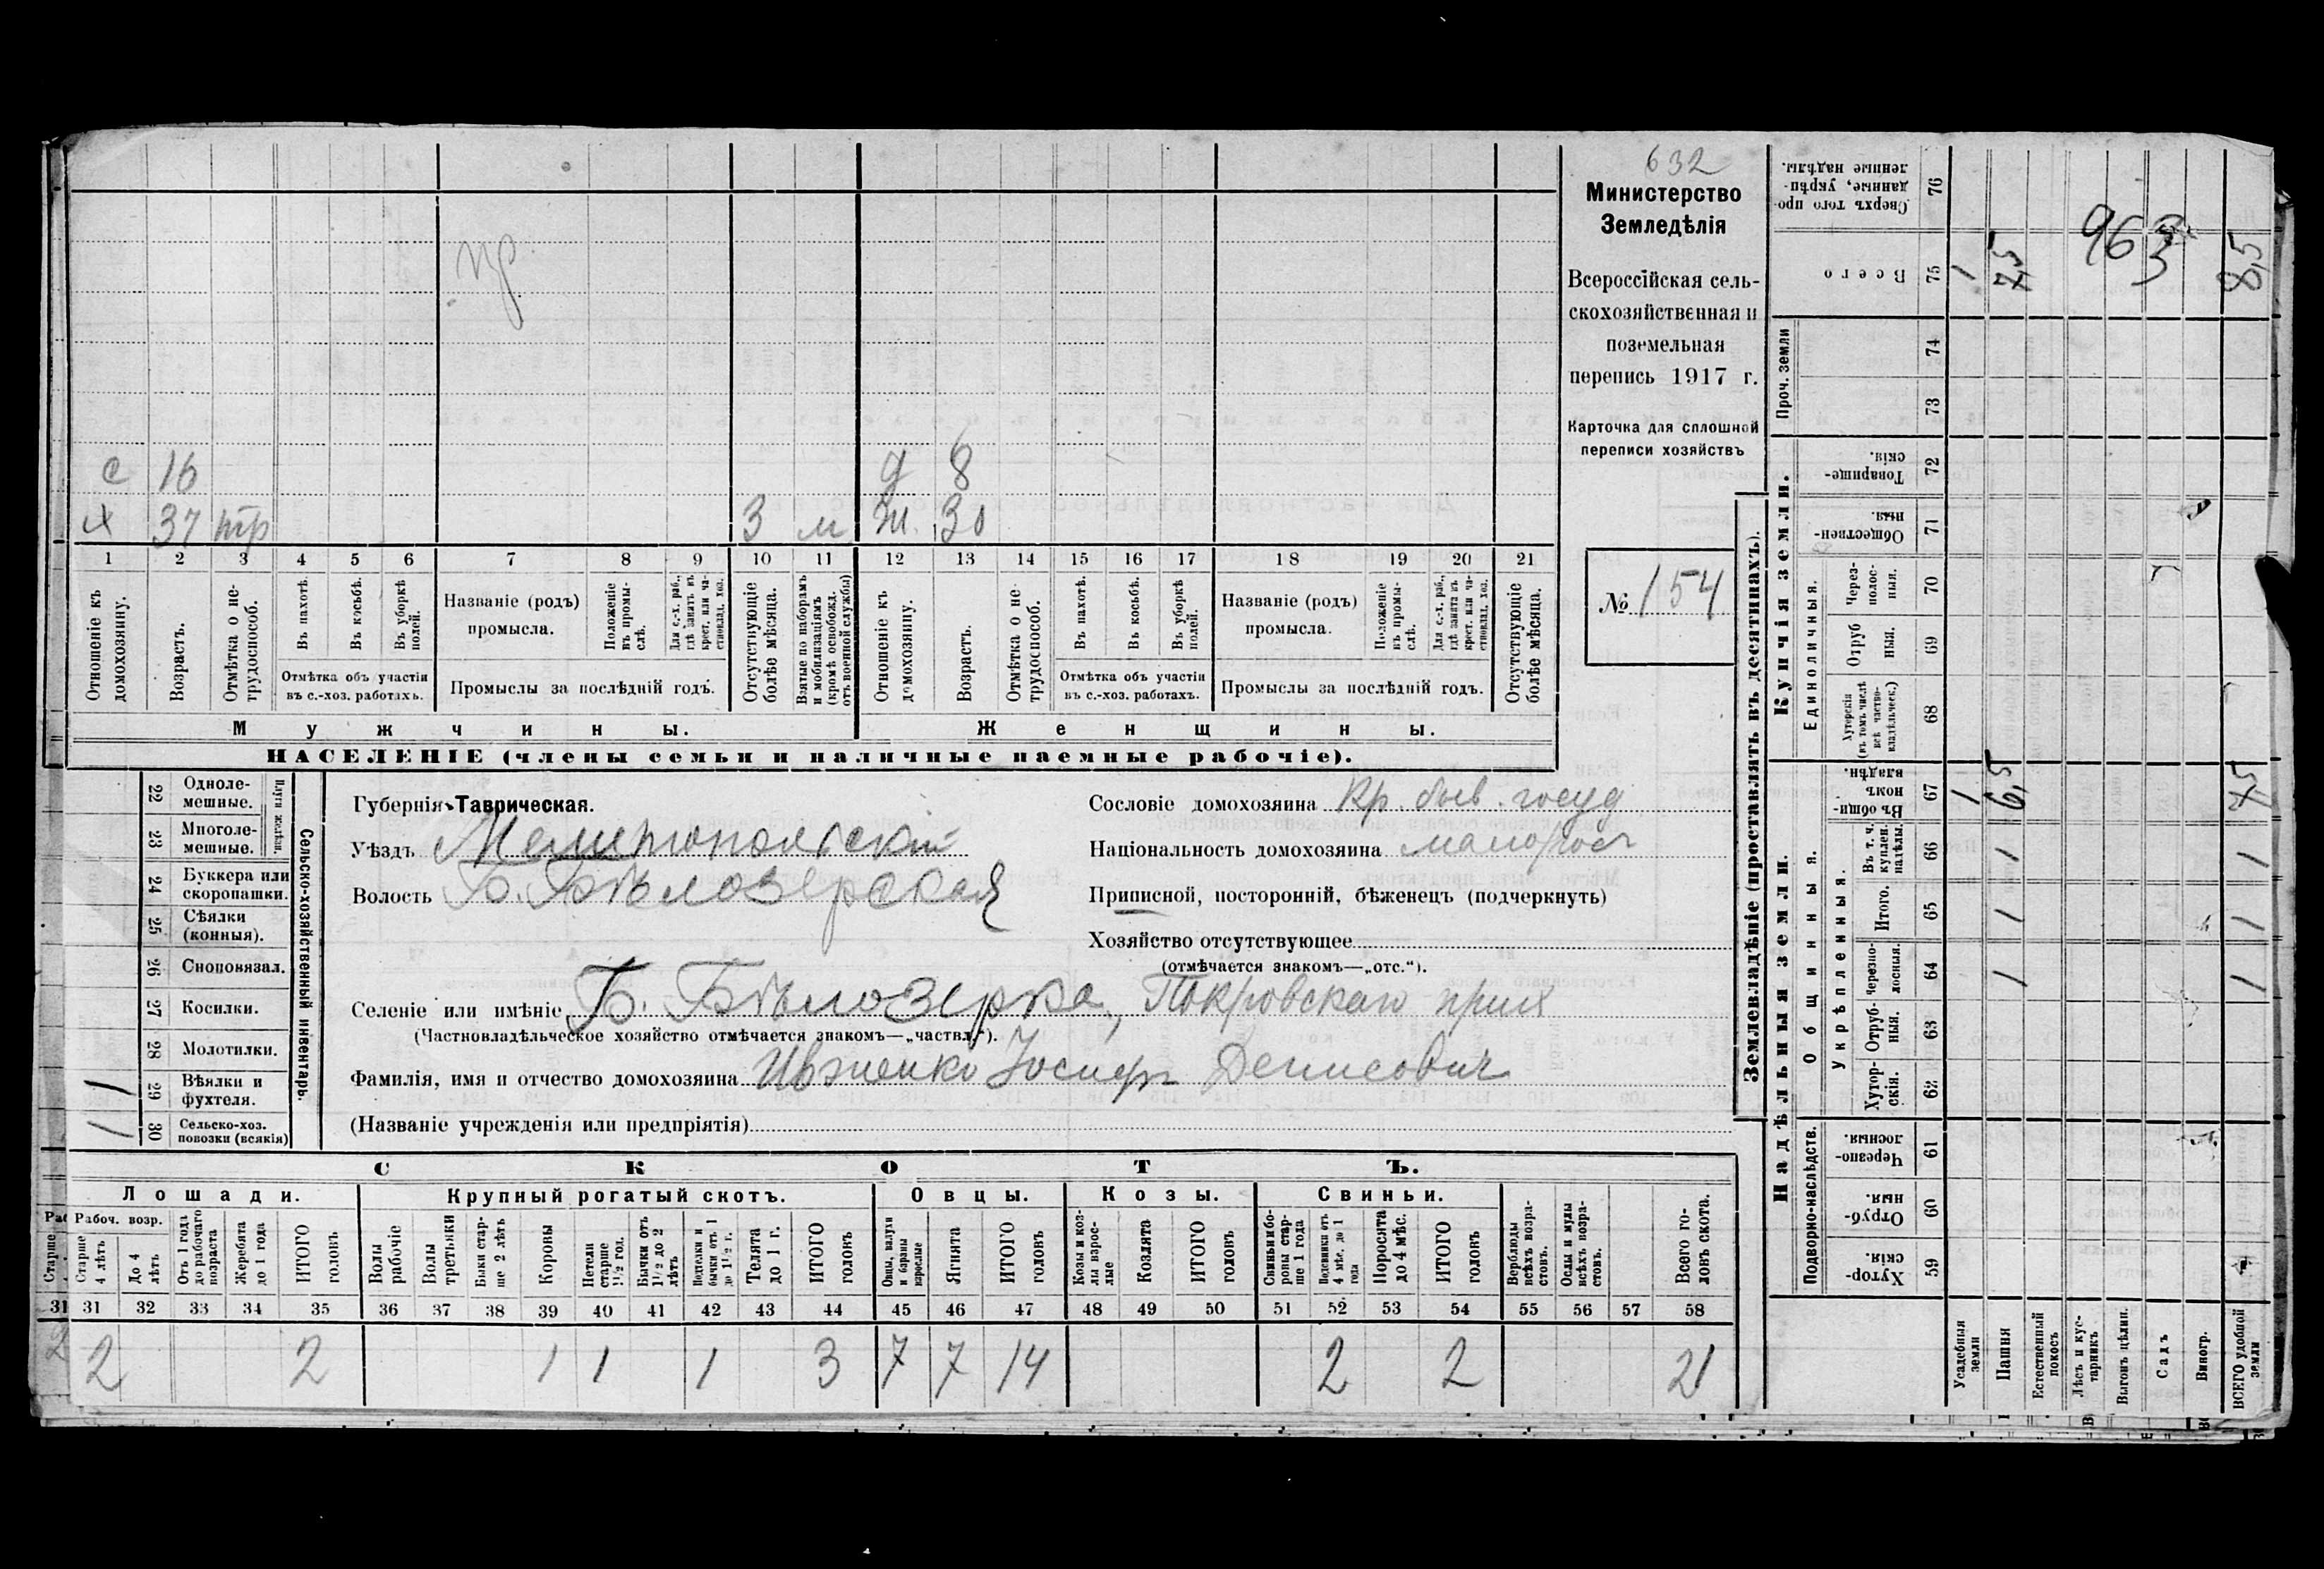 632
Министерство
Земледѣлія
Всероссійская сель-
скохозяйственная и
поземельная
перепись 1917 г.
Карточка для сплошной
переписи хозяйствъ
№ 154
пр
с 16
х 37 тр 3 м
д 8
ж. 30
1 2 3 4 5 6 7 8 9 10 11 12 13 14 15 16 17 18 19 20 21
Отношеніе къ домохозяину.
Возрастъ.
Отмѣтка о не-трудоспособ.
Въ пахотѣ.
Въ косьбѣ.
Въ уборкѣ полей.
Отмѣтка объ участіи
въ с.-хоз. работахъ.
Названіе (родъ)
промысла.
Положеніе въ промы-слѣ.
Для с.-х. раб., гдѣ занятъ въ крест. или ча-стновлад. хоз.
Промыслы за послѣдній годъ.
Отсутствующіе болѣе мѣсяца.
Взятые по наборамъ и мобилизаціямъ (кромѣ освобожд. отъ военной службы)
Отношеніе къ домохозяину.
Возрастъ.
Отмѣтка о не-трудоспособ.
Въ пахотѣ.
Въ косьбѣ.
Въ уборкѣ полей.
Отмѣтка объ участіи
въ с.-хоз. работахъ.
Названіе (родъ)
промысла.
Положеніе въ промы-слѣ.
Для с.-х. раб., гдѣ занята въ крест. или ча-стновлад. хоз.
Промыслы за послѣдній годъ.
Отсутствующіе болѣе мѣсяца.
Мужчины.
Женщины.
НАСЕЛЕНІЕ (члены семьи и наличные наемные рабочіе).
Сельско-хозяйственный инвентарь.
Плуги желѣзн.
22 Одноле-мешные.
23 Многоле-мешные.
24 Буккера или скоропашки.
25 Сѣялки (конныя).
26 Сноповязал.
27 Косилки.
28 Молотилки.
1 29 Вѣялки и фухтеля.
1 30 Сельско-хоз. повозки (всякія)
Губернія Таврическая.
Уѣздъ Мелитопольскій
Волость Б. Бѣлозерская
Сословіе домохозяина Кр. быв. госуд
Національность домохозяина малорос
Приписной, посторонній, бѣженецъ (подчеркнуть)
Хозяйство отсутствующее
(отмѣчается знакомъ—„отс.“).
Селеніе или имѣніе Б. Бѣлозерка, Покровскаго прих
(Частновладѣльческое хозяйство отмѣчается знакомъ—„частвл.“).
Фамилія, имя и отчество домохозяина Ивженко Іосифъ Денисович
(Названіе учрежденія или предпріятія)
СКОТЪ.
Лошади. Крупный рогатый скотъ. Овцы. Козы. Свиньи.
Рабоч. возр.
Старше 4 лѣтъ
До 4 лѣтъ
Отъ 1 года до рабочаго возраста
Жеребята до 1 года
ИТОГО головъ
Волы рабочіе
Волы третьяки
Быки стар-ше 2 лѣтъ
Коровы
Нетели старше 1½ год.
Бычки отъ 1½ до 2 лѣтъ
Бычки отъ 1 до 1½ г.
Телята до 1 г.
ИТОГО головъ
Овцы, валухи и бараны взрослые
Ягнята
ИТОГО головъ
Козы и коз-лы взрос-лые
Козлята
ИТОГО головъ
Свиньи и бо-ровы стар-ше 1 года
Подсвинки отъ 4 мѣс. до 1 года
Поросята до 4 мѣс.
ИТОГО головъ
Верблюды всѣхъ возра-стовъ.
Ослы и мулы всѣхъ возра-стовъ.
Всего го-ловъ скота.
31 32 33 34 35 36 37 38 39 40 41 42 43 44 45 46 47 48 49 50 51 52 53 54 55 56 57 58
2 2 1 1 1 3 7 7 14 2 2 21
Землевладѣніе (проставлять въ десятинахъ).
Надѣльныя земли.
Купчія земли.
Проч. земли
Подворно-наслѣдств.
Общинныя.
Укрѣпленныя.
Единоличныя.
Хутор-скія. 59
Отруб-ныя. 60
Черезпо-лосныя. 61
Хутор-скія. 62
Отруб-ныя. 63
Черезпо-лосныя. 64
Итого. 65
Въ т. ч. куплен. надѣлы. 66
Въ общи-номъ владѣн. 67
Хуторскія (въ томъ числѣ всѣ частно-владѣльческ.) 68
Отруб ныя. 69
Через-полос-ныя. 70
Обществен-ныя. 71
Товарище-скія. 72
73
74
Всего 75
Сверхъ того про-данные, укрѣп-ленные надѣлы. 76
Усадебныя земли 1 1
Пашня 1 1 1 6,5 7,5
Естественный покосъ
Лѣсъ и кус-тарникъ
Выгонъ цѣлин.
Садъ
Виногр.
ВСЕГО удобной земли 1 1 1 7,5 8,5
963